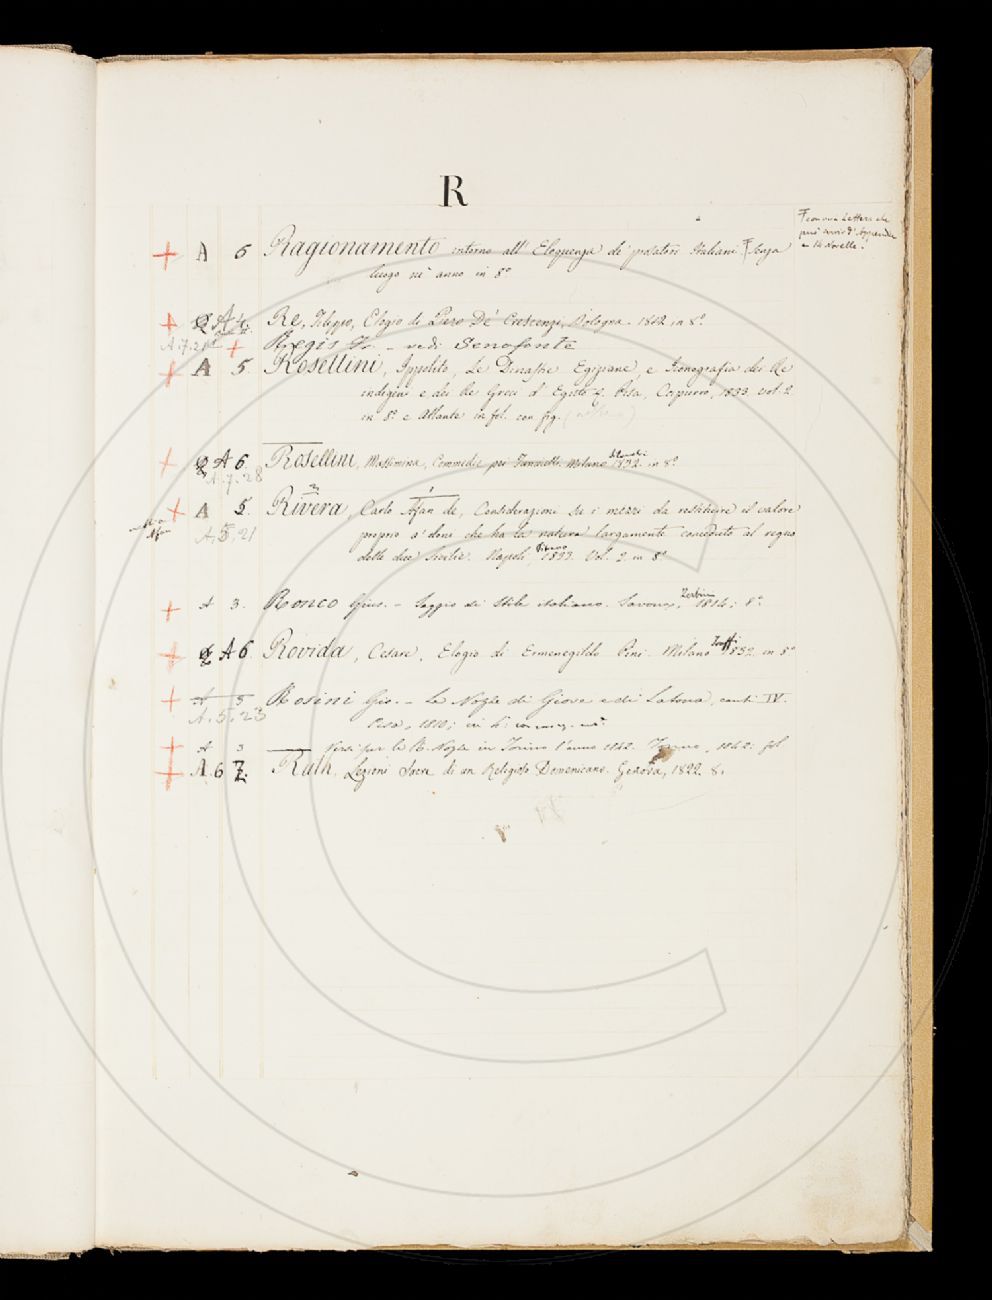 R
F con una Lettera che
può servir d'Appendice
e 14 Novelle.
+ A 5 Ragionamento intorno all' Eloquenza de' prosatori Italiani. F Senza
luogo nè anno in 8º
+ A 4. Re, Filippo, Elogio di Piero De' Crescenzi, Bologna. 1812 in 8º
A.7.21 + Regis Fr. - vedi Senofonte
+ A 5. Rosellini, Ippolito, Le Dinastie Egiziane, e Iconografia dei Re
indigeni e dei Re Greci d' Egitto &. Pisa, Capurro, 1833. vol. 2
in 8º e Atlante in fol. con fig.
+ A 6. Rosellini, Massimina, Commedie pei Fanciulli. Milano 1832. in 8º
A.7.28
+ A 5. Rivera, Carlo Afan de, Considerazione su i mezzi da restituire il valore
A.5.21 proprio a' doni che ha la natura largamente conceduto al regno
delle due Sicilie. Napoli, 1833. Vol. 2. in 8º
+ A 3. Ronco Gius. - Saggio di Stile italiano. Savona, Zerbini 1814; 8º
+ A 6 Rovida, Cesare, Elogio di Ermenegildo Pini. Milano 1832. in 8º
+ A 3 Rosini Gio. - Le Nozze di Giove e di Latona, canti IV.
A.5.23 Pisa, 1810; in 4º
+ A 3 — Versi per le R. Nozze in Torino l'anno 1842. 1842. fol
+ A. 6 Z. Ruth, Lezioni Sacre di un Religioso Domenicano. Genova, 1822. 8.